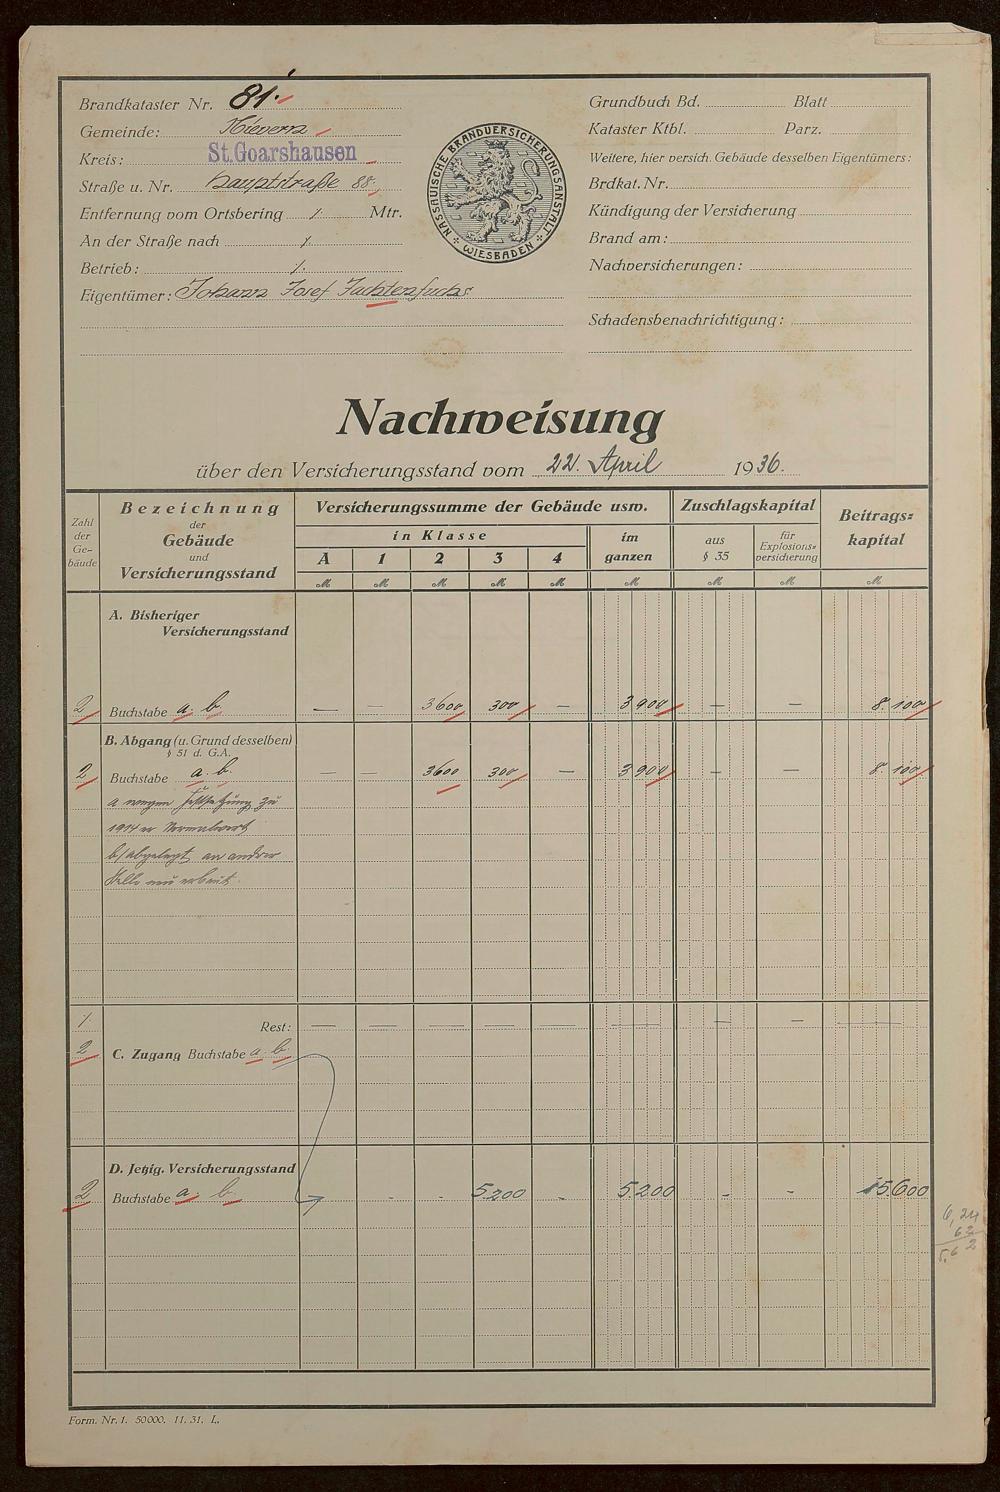 Brandkataster Nr. 81.
Gemeinde: Nievern
Kreis: St. Goarshausen
Straße u. Nr. Hauptstraße 88.
Entfernung vom Ortsbering ⁒ Mtr.
An der Straße nach ⁒
Betrieb: ⁒
Eigentümer: Johann Josef
NASSAUISCHE BRANDVERSICHERUNGSANSTALT
WIESBADEN
Grundbuch Bd. Blatt
Kataster Ktbl. Parz.
Weitere, hier versich. Gebäude desselben Eigentümers:
Brdkat. Nr.
Kündigung der Versicherung
Brand am:
Nachversicherungen:
Schadensbenachrichtigung:
Nachweisung
über den Versicherungsstand vom 22. April 1936.
Zahl der Ge-bäude
Bezeichnung der Gebäude und Versicherungsstand
Versicherungssumme der Gebäude usw.
in Klasse
A 1 2 3 4
im ganzen
Zuschlagskapital
aus § 35
für Explosions-versicherung
Beitrags-kapital
M M M M M M M M M
A. Bisheriger
Versicherungsstand
2 Buchstabe a. b. — — 3600 300 — 3900 — — 8.100
B. Abgang (u. Grund desselben)
§ 51 d. G.A.
2 Buchstabe a. b. — — 3600 300 — 3900 — — 8.100
a wegen Festsetzung zu
1914er
b/ abgelegt an andrer
Stelle neu erbaut.
⁒ Rest: — — — — — — — — —
2 C. Zugang Buchstabe a. b.
D. Jetzig. Versicherungsstand
2 Buchstabe a. b. - - 5200 - 5.200 - - 15.600
6,24
62
5,62
Form. Nr. 1. 50000. 11. 31. L.